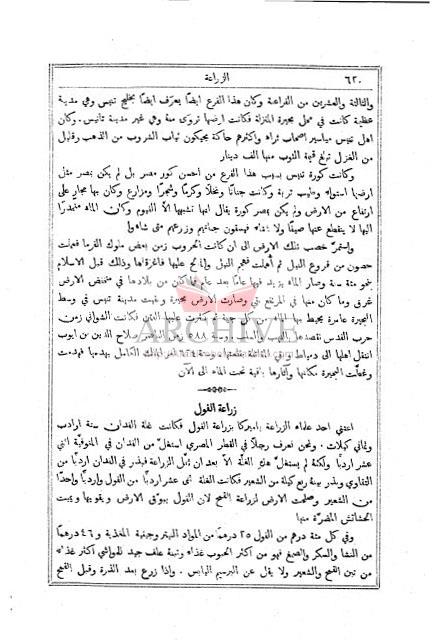 ٦٢٠ الزراعة
والثالثة والعشرين من الفراعنة وكان هذا الفرع ايضًا يعرف ايضًا بخليج تنيس وهي مدينة
عظيمة كانت في محل بحيرة المنزلة فكانت ارضها تروى منهُ وهي غير مدينة تانيس. وكان
اهل تنيس مياسير اصحاب ثراء واكثرهم حاكة يحيكون ثياب الشروب من الذهب وقليل
من الغزل تبلغ قيمة الثوب منها الف دينار
وكانت كورة تنيس بسبب هذا الفرع من احسن كور مصر بل لم يكن بمصر مثل
ارضها استواء وطيب تربة وكانت جنانًا ونخلًا وكرمًا وشجرًا ومزارع وكان بها مجار على
ارتفاع من الارض ولم يكن بمصر كورة يقال انها تشبهها الا الفيوم وكان الماء منحدرًا
اليها لا ينقطع عنها صيفًا ولا شتاء فيسقون جناتهم وزرعهم متى شاءوا
واستمرّ خصب تلك الارض الى ان كانت الحروب زمن بعض ملوك الفرما فعملت
حصون من فروع النيل ثم أهملت فهجم النيل والمالح عليها فاغرقاها وذلك قبل الاسلام
بنحو مئة سنة وصار الماء يزيد فيها عامًا بعد عام فما كان من بلادها في منخفض الارض
غرق وما كان منها في المرتفع بقي وصارت الارض بحيرة وبقيت مدينة تنيس في وسط
البحيرة عامرة يحيط بها الماء من كل جهة ثم كثرت عليها الفتن فكانت الشواني زمن
حرب القدس تقصدها بالنهب والسلب وسنة ٥٨٨ زمن الناصر صلاح الدين بن ايوب
انتقل اهلها الى دمياط وبقي المقاتلة بقلعتها وسنة ٦٢٤ امر الملك الكامل بهدمها فهدمت
وتملّت البحيرة مكانها وآثارها باقية تحت الماء الى الآن
زراعة الفول
اعتنى احد علماء الزراعة باميركا بزراعة الفول فكانت غلة الفدان ستة ارادب
وثماني كيلات. ونحن نعرف رجلًا في القطر المصري استغلّ من الفدان في المنوفيَّة اثني
عشر اردبًّا ولكنهُ لم يستغلّ هذه الغلَّة الَّا بعد ان ثقَّل الزراعة فبذر في الفدان اردبًّا من
التقاوي وبذر بينهُ ربع كيلة من الشعير فكانت الغلة اثني عشر اردبًّا من الفول واردبًّا واحدًا
من الشعير وصلحت الارض لزراعة القمح لان الفول يبوّق الارض ويقويها ويميت
الحشائش المضرَّة منها
وفي كل مئة درهم من الفول ٢٥ درهمًا من المواد النيتروجنية المغذية و٤٦ درهمًا
من النشا والسكر والصمغ فهو من اكثر الحبوب غذاء وتبنهُ علف جيد للمواشي اكثر غذاء
من تبن القمح والشعير ولا يقل عن البرسيم اليابس. واذا زرع بعد الذرة وقبل القمح
ARCHIVE